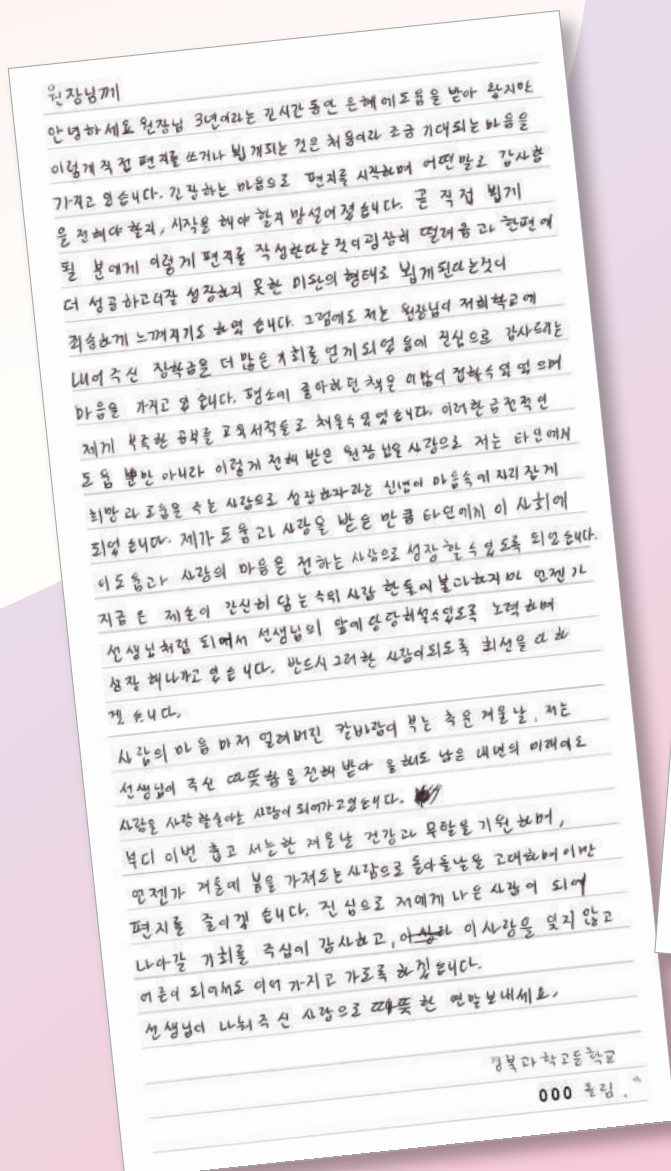 원장님께
안녕하세요 원장님 3년이라는 긴시간동안 은혜에도움을 받아 왔지만
이렇게 직접 편지를 쓰거나 뵙게되는 것은 처음이라 조금 기대되는 마음을
가지고 있습니다. 긴장하는 마음으로 편지를 시작하며 어떤말로 감사함
을 전해야 할지, 시작을 해야 할지 망설여졌습니다. 곧 직접 뵙게
될 분에게 이렇게 편지를 작성한다는것이굉장히 떨려움과 한편에
더 성공하고더잘 성장하지 못한 미완의 형태로 뵙게된다는것이
죄송하게 느껴지기도 하였 습니다. 그럼에도 저는 원장님이 저희학교에
내어주신 장학금을 더 많은 기회를 얻게되었 음에 진심으로 감사드리는
마음을 가지고 있 습니다. 평소에 좋아하던 책은 더많이 접할수있었 으며
제게 부족한 공부를 교육서적들로 채울수있었습니다. 이러한금전적인
도움 뿐만 아니라 이렇게 전해 받은 원장님의사랑으로 저는 타인에게
희망과 도움을 주는 사람으로 성장하자라는 신념이 마음속에자리잡게
되었습니다. 제가 도움과 사랑을 받은 만큼 타인에게 이 사회에
이도움과 사랑의 마음을 전하는 사람으로 성장 할 수 있 도록 되었습니다.
지금은 제손이 간신히 닿는 수위 사람 한둘에불과하지만 언젠가
선생님처럼 되어서 선생님의 앞에 당당히설수있도록 노력하며
성장 해나가고 있습니다. 반드시그러한 사람이되도록 최선을 다하
겠습니다.
사람의 마음마저 얼려버린 칼바람이 부는 추운 겨울날, 저는
선생님이 주신 따뜻함을 전해받아 올해도 남은 내년의 미래에도
사랑을 사랑할줄아는 사람이 되어가고있습니다.
부디 이번 춥고 서늘한 겨울날 건강과 무탈을 기원하며,
언젠가 겨울에 봄을 가져오는사람으로 돌아올날을 고대하며이만
편지를 줄이겠 습니다. 진심으로 저에게 나은 사람이 되어
나아갈 기회를 주심에 감사하고, 이사랑을 잊지 않고
어른이 되어서도 이어 가지고 가도록 하겠습니다.
선생님이 나눠주신 사랑으로 따뜻한 연말보내세요.
경북과학고등학교
000 올림.